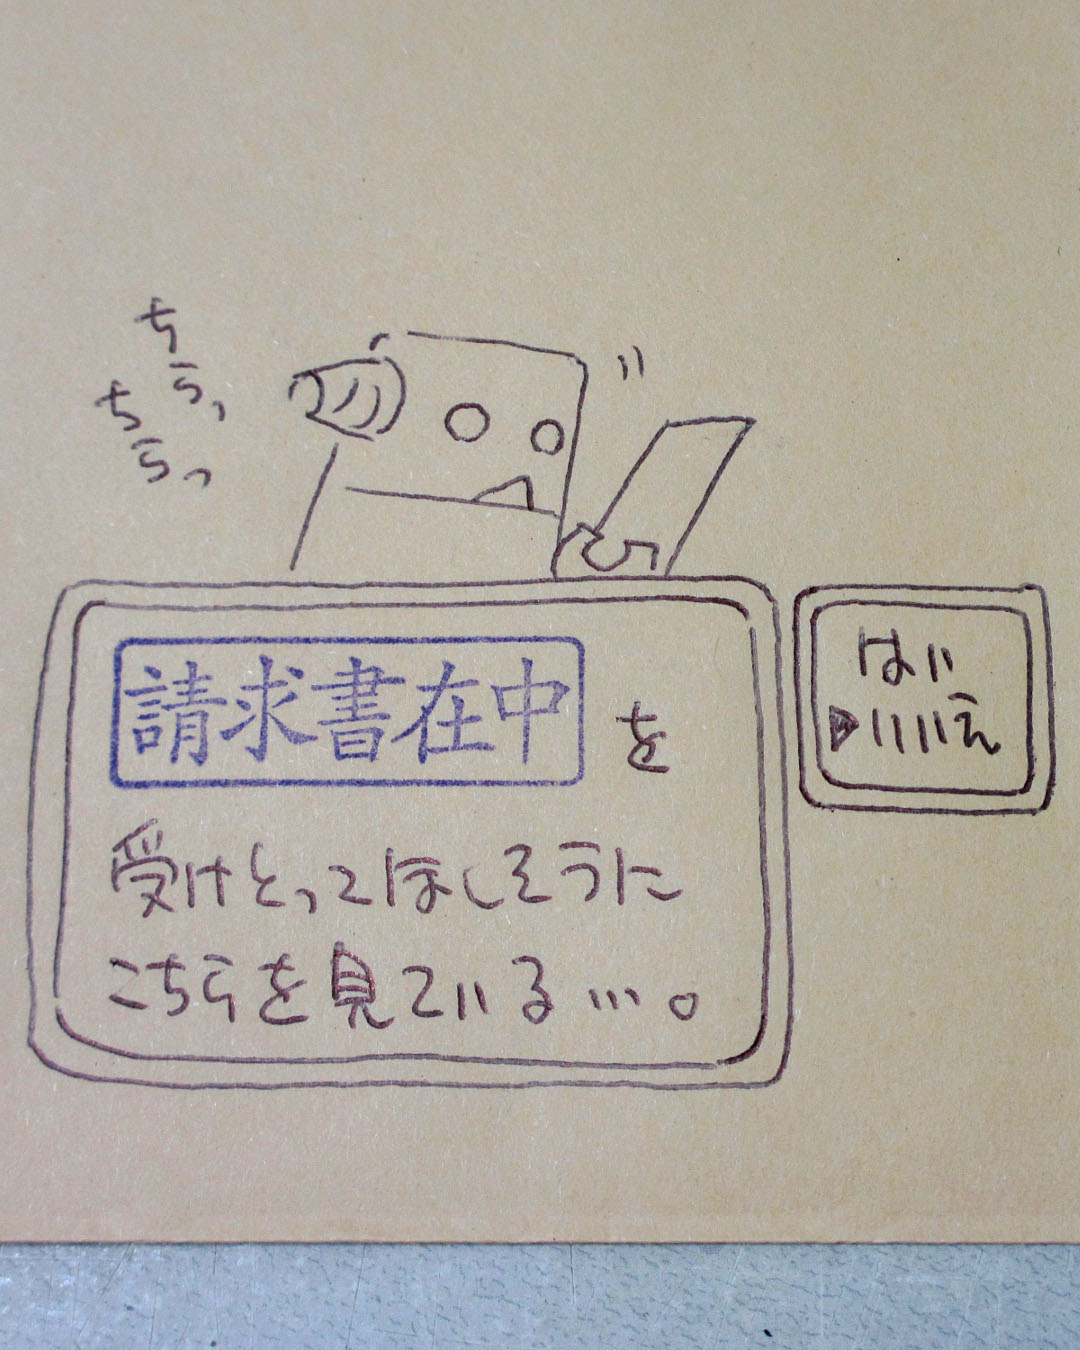 ちらっ
ちらっ
請求書在中を
受けとってほしそうに
こちらを見ている…。
はい
▶いいえ